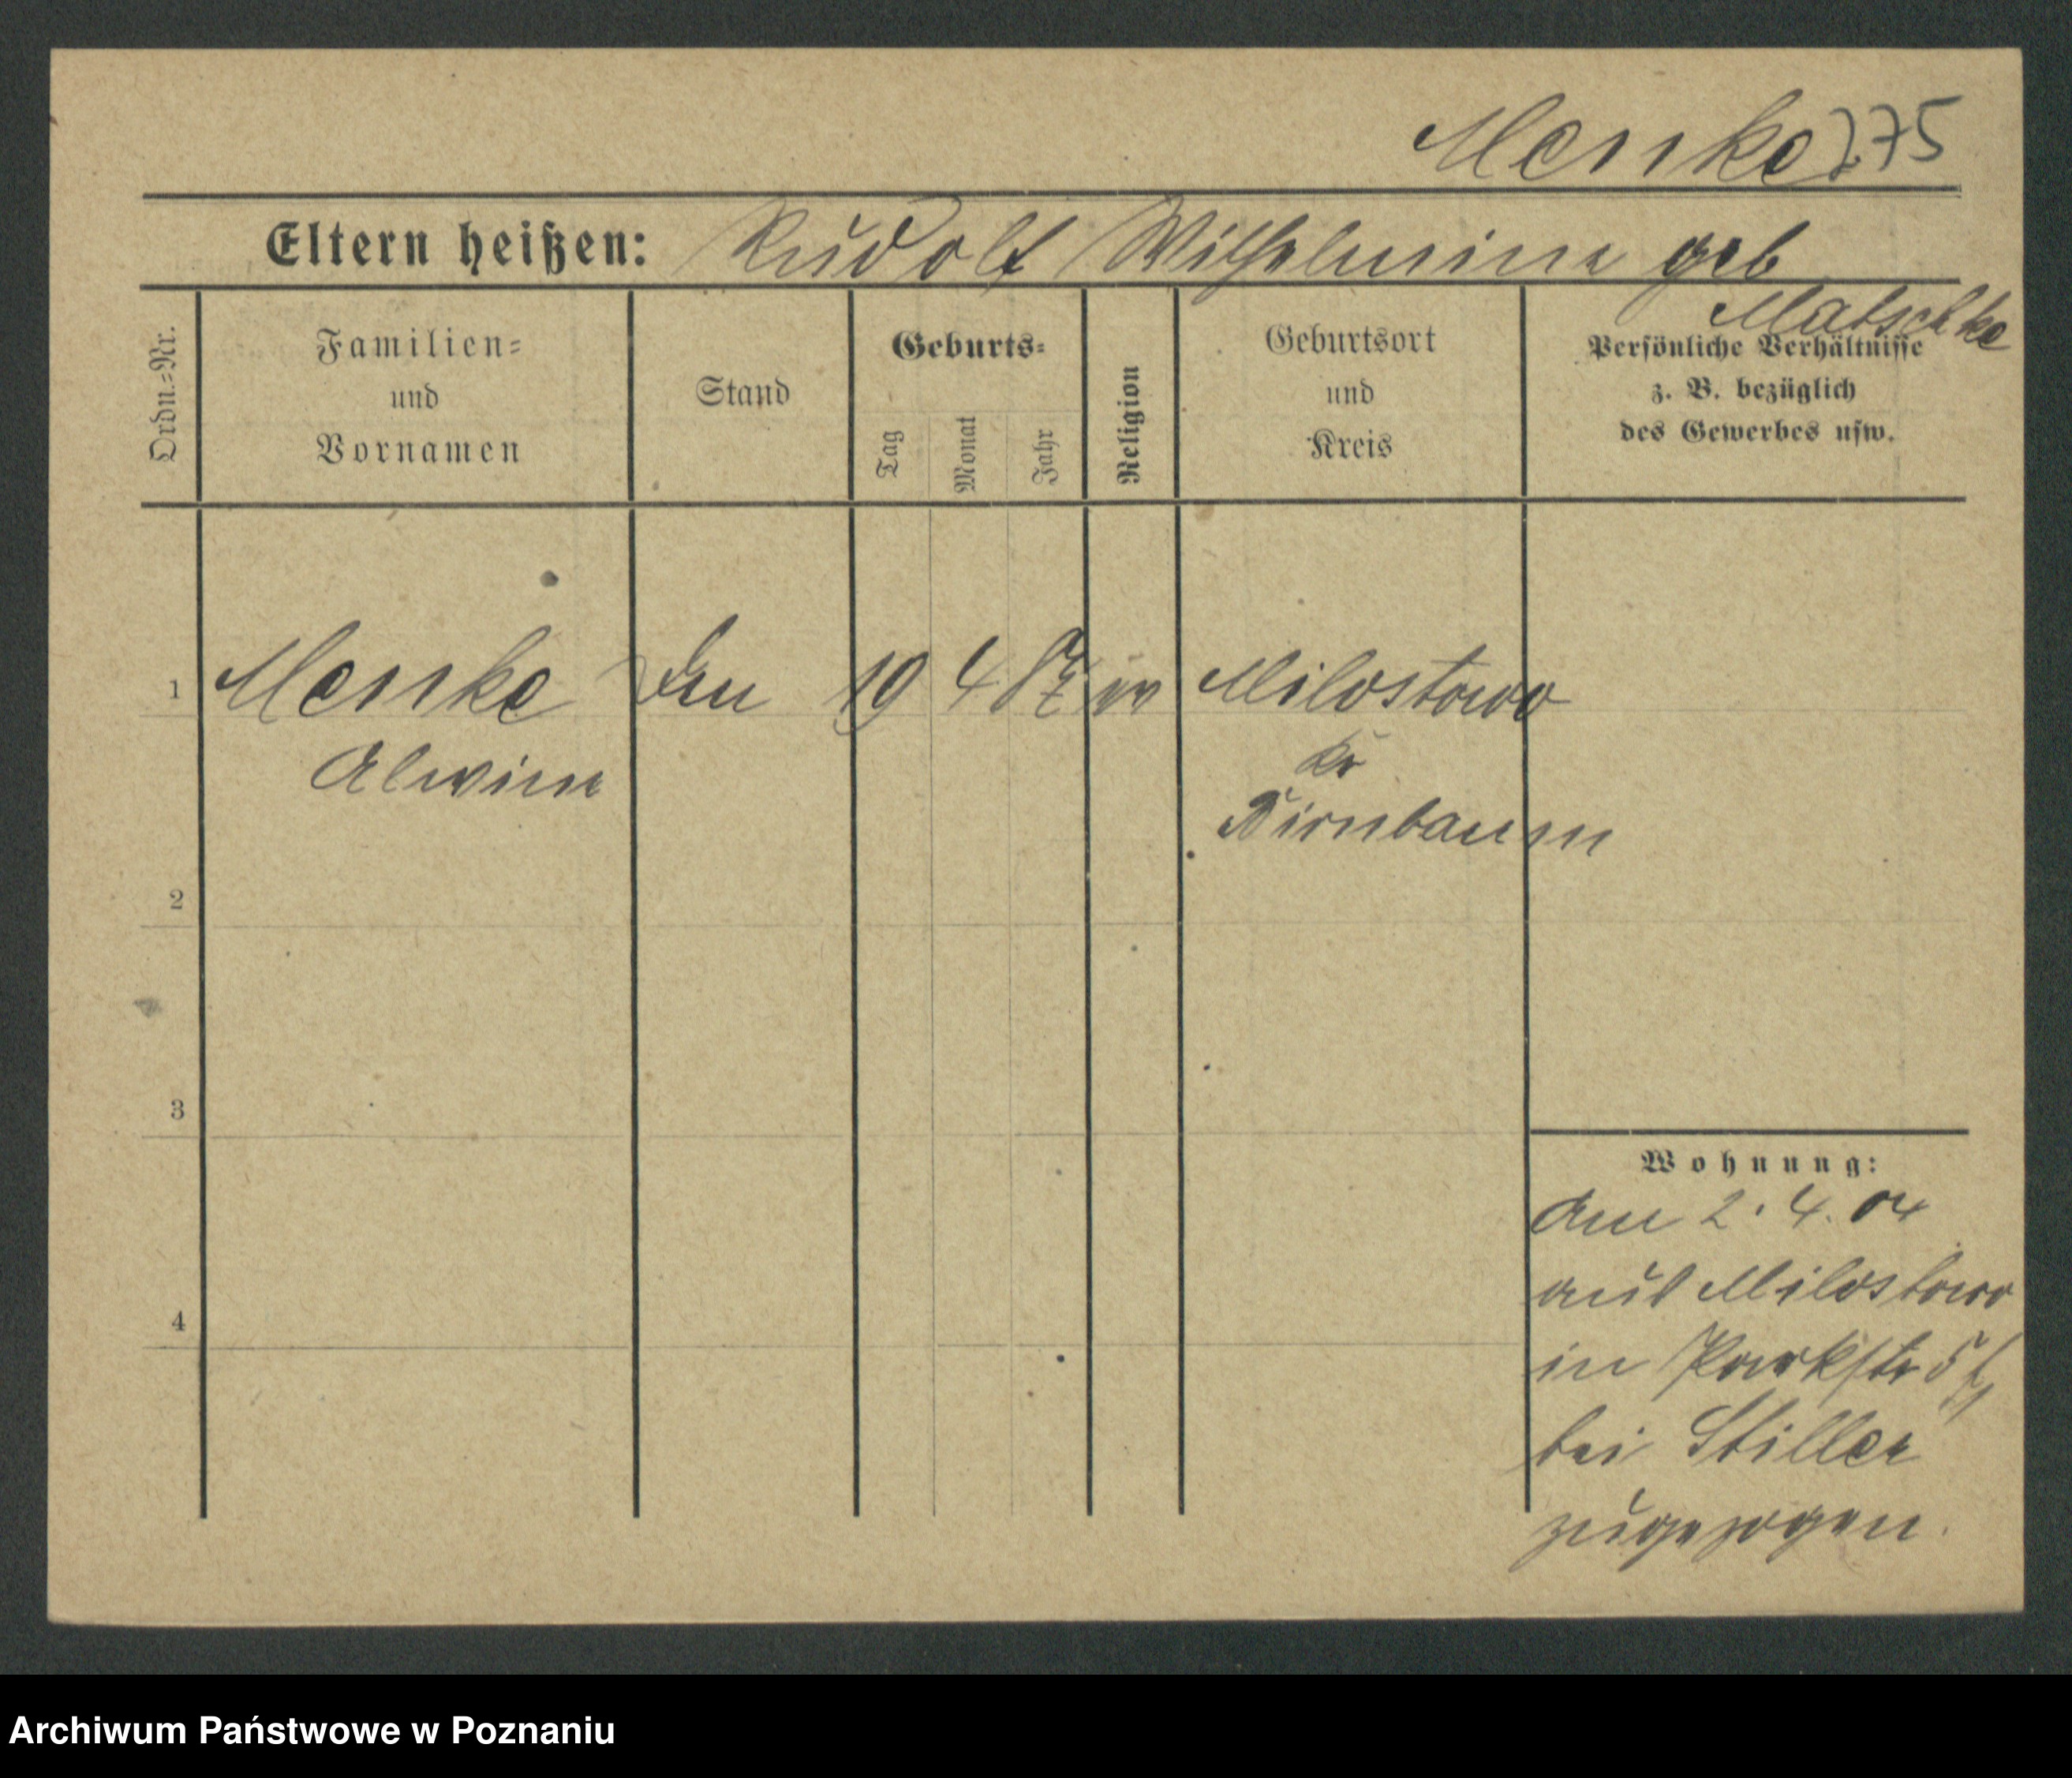 Menke 275
Eltern heißen: Rudolf Wilhelmine geb
Matschke
Ordn.-Nr.
Familien-
und
Vornamen
Stand
Geburts-
Tag
Monat
Jahr
Religion
Geburtsort
und
Kreis
Persönliche Verhältnisse
z. B. bezüglich
des Gewerbes usw.
1 Menke 19 4 87 ev Milostowo
Alwine
Kr
Birnbaum
2
3
4
Wohnung:
Am 2. 4. 04
aus Milostowo
in Parkstr
bei Stiller
zugezogen.
Archiwum Państwowe w Poznaniu